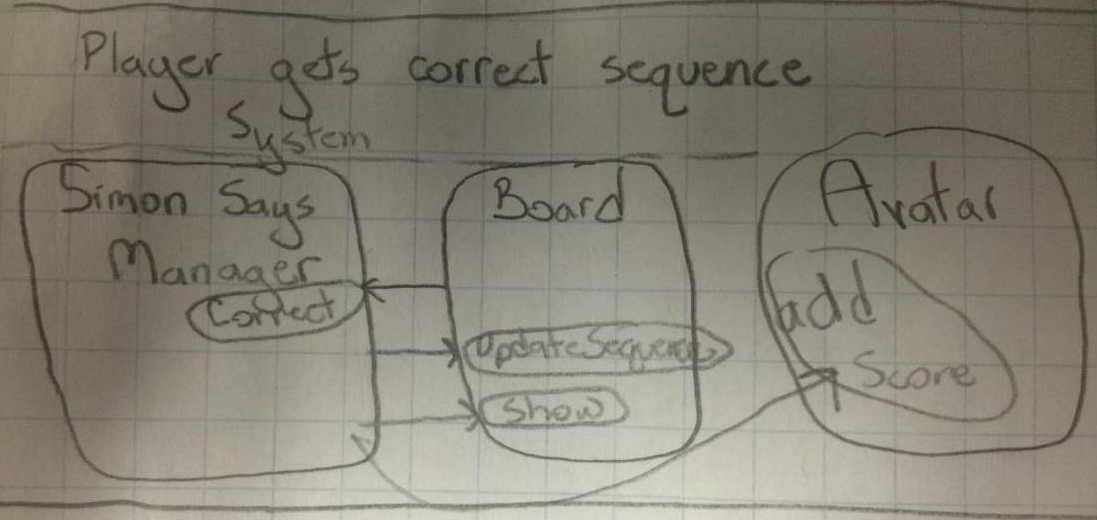 Player gets correct sequence
System
Simon Says
Manager
Correct
Board
UpdateSequence
Show
Avatar
add
Score